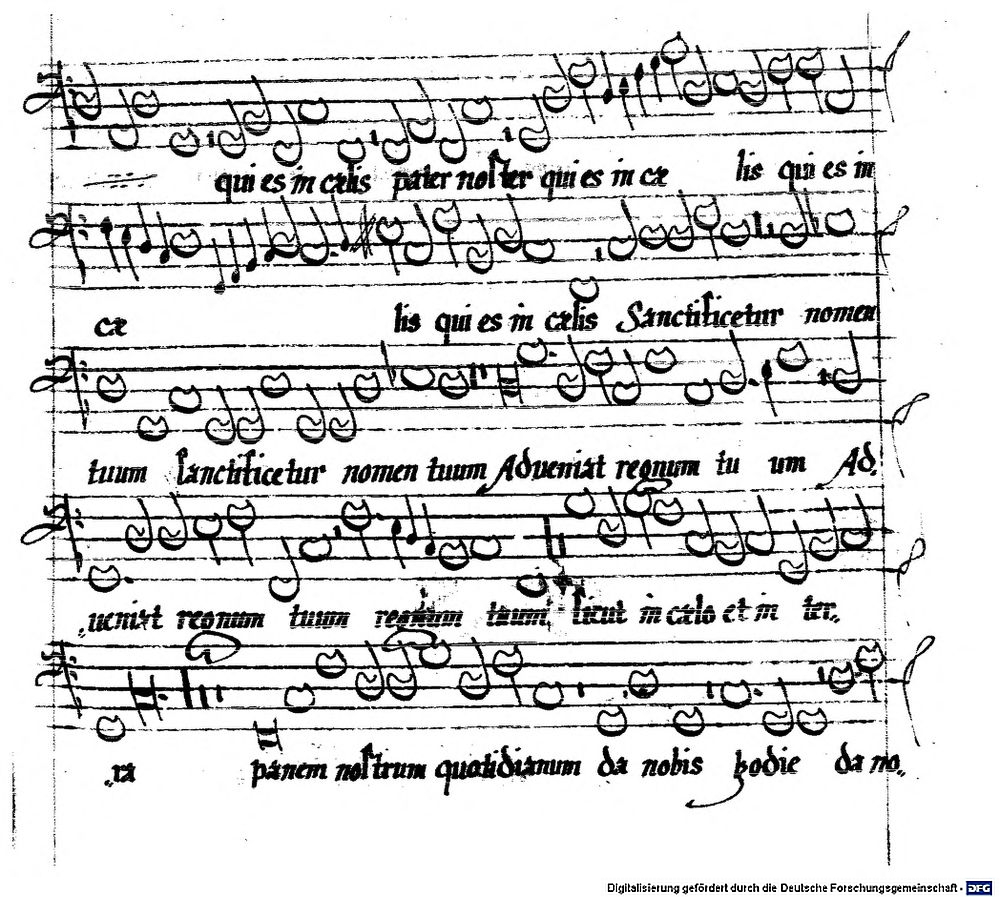 qui es in cælis pater noster qui es in cæ lis qui es in
cæ lis qui es in cælis Sanctificetur nomen
tuum sanctificetur nomen tuum Adueniat regnum tu um Ad.
.ueniat regnum tuum regnum tuum sicut in cælo et in ter..
..ra panem nostrum quotidianum da nobis hodie da no..
Digitalisierung gefördert durch die Deutsche Forschungsgemeinschaft - DFG